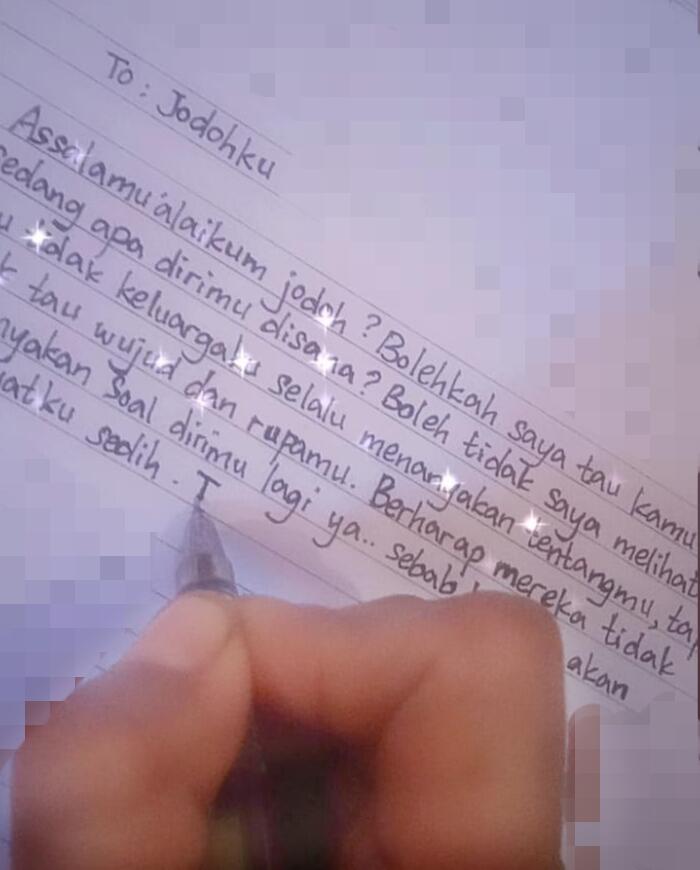 To: Jodohku
Assalamu'alaikum jodoh? Bolehkah saya tau kamu
sedang apa dirimu disana? Boleh tidak saya melihat
u tidak keluargaku selalu menanyakan tentangmu, tap
k tau wujud dan rupamu. Berharap mereka tidak
nyakan soal dirimu lagi ya.. sebab akan
uatku sedih. T